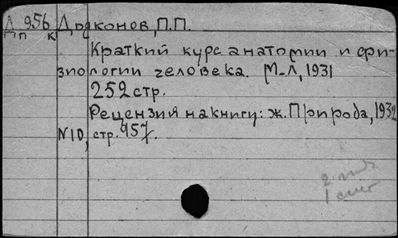 Д 956 Дьяконов, П.П.
Дп к
Краткий курс анатомии и фи-
зиологии человека. М-Л, 1931
252 стр.
Рецензия на книгу: ж. Природа, 1932
N10, стр. 957.